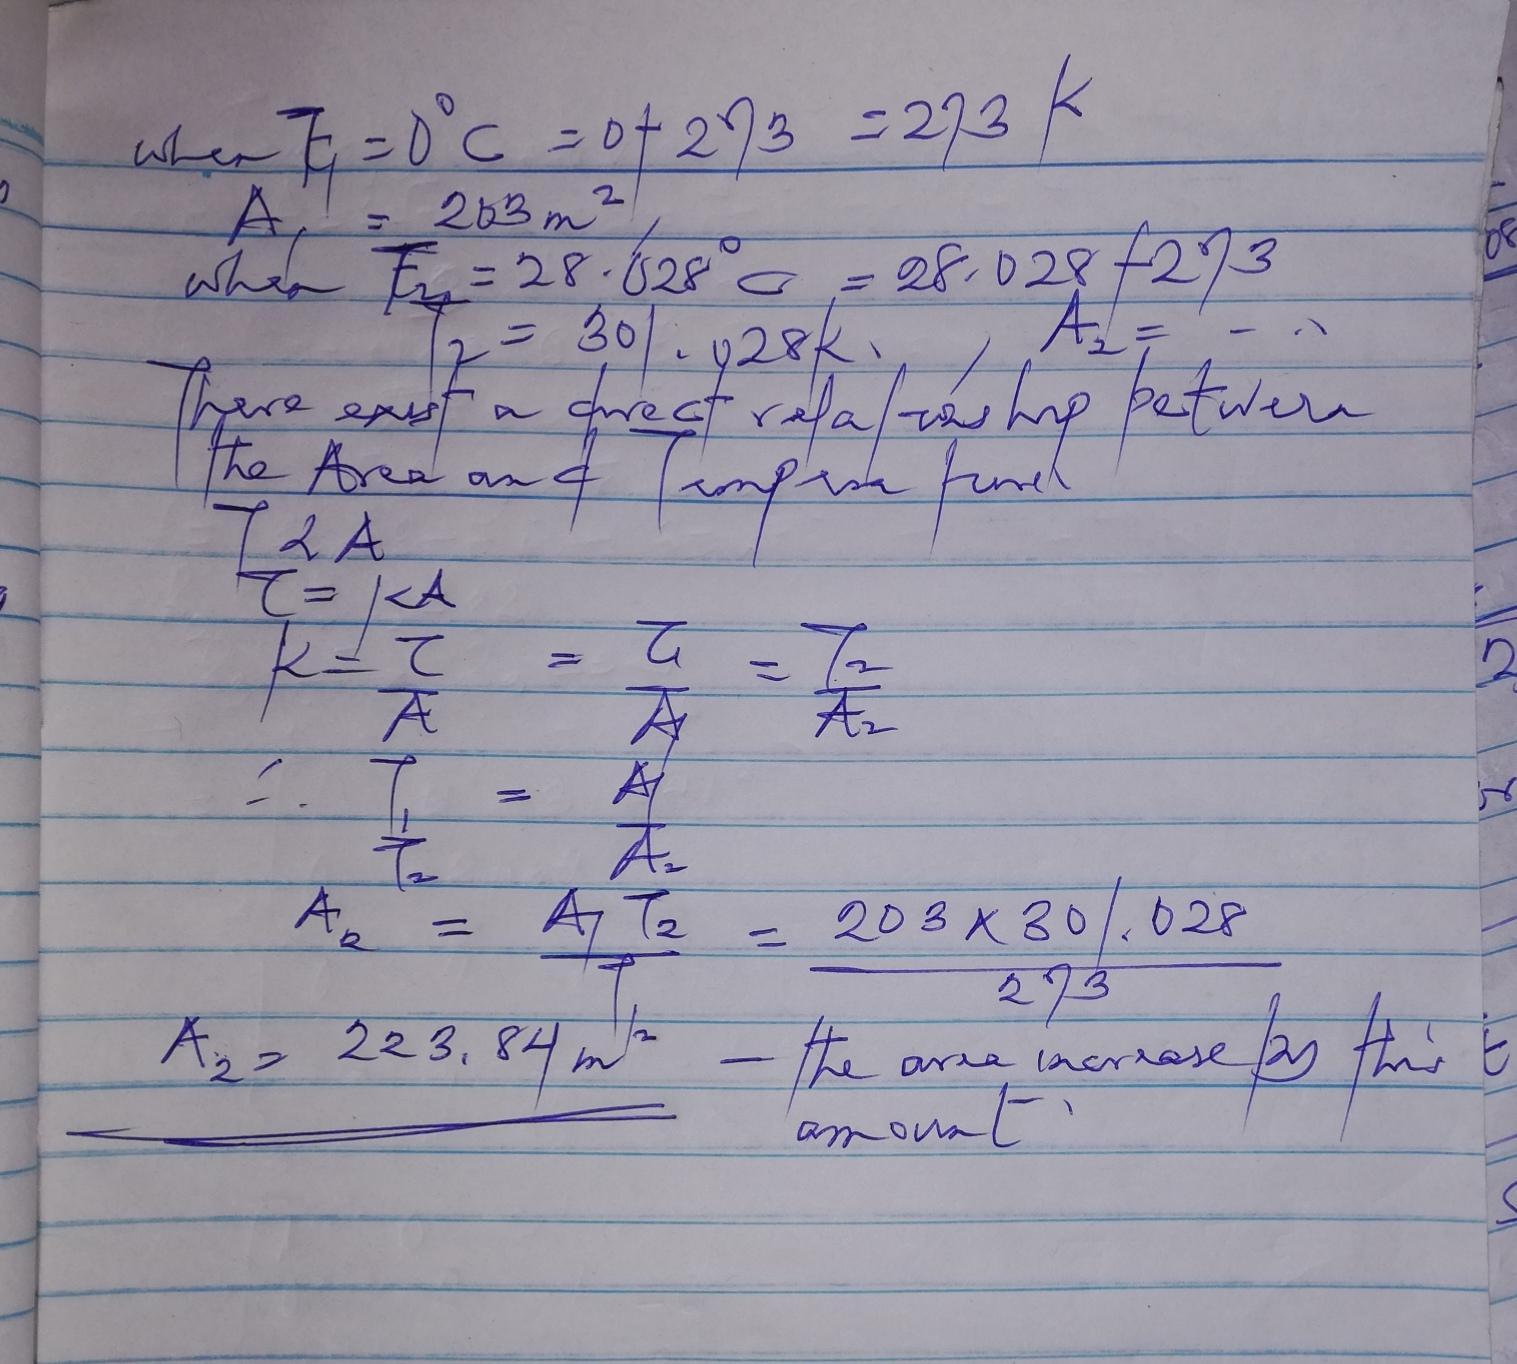 when T₁ = 0°C = 0 + 273 = 273 K
A₁ = 203 m²,
when T₂ = 28.028°C = 28.028 + 273
T₂ = 301.028K. , A₂ = - ..
There exist a direct relationship between
the Area and Temperature
T α A
T = KA
K = T/A = T₁/A₁ = T₂/A₂
∴ T₁/T₂ = A₁/A₂
A₂ = A₁T₂/T₁ = 203 x 301.028/273
A₂ = 223.84 m² - the area increase by this
amount.